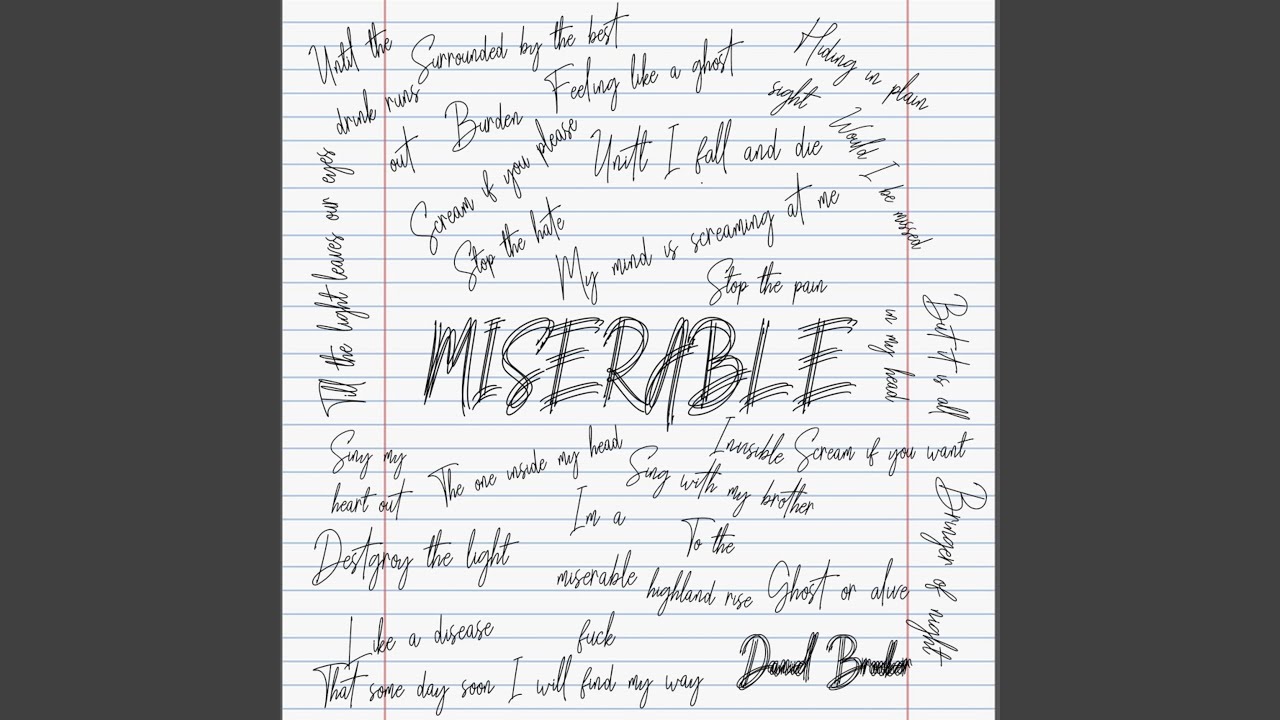 Until the
drink runs
out
Surrounded by the best
Feeling like a ghost
Hiding in plain
sight
Burden
Would I be missed
Scream if you please
Unitl I fall and die
Till the light leaves our eyes
Stop the hate
My mind is screaming at me
Stop the pain
in my head
But it is all
MISERABLE
Sing my
heart out
The one inside my head
Invisible
Scream if you want
Sing with my brother
Im a
miserable
fuck
To the
highland rise
Bringer of night
Destgroy the light
Ghost or alive
Like a disease
That some day soon I will find my way